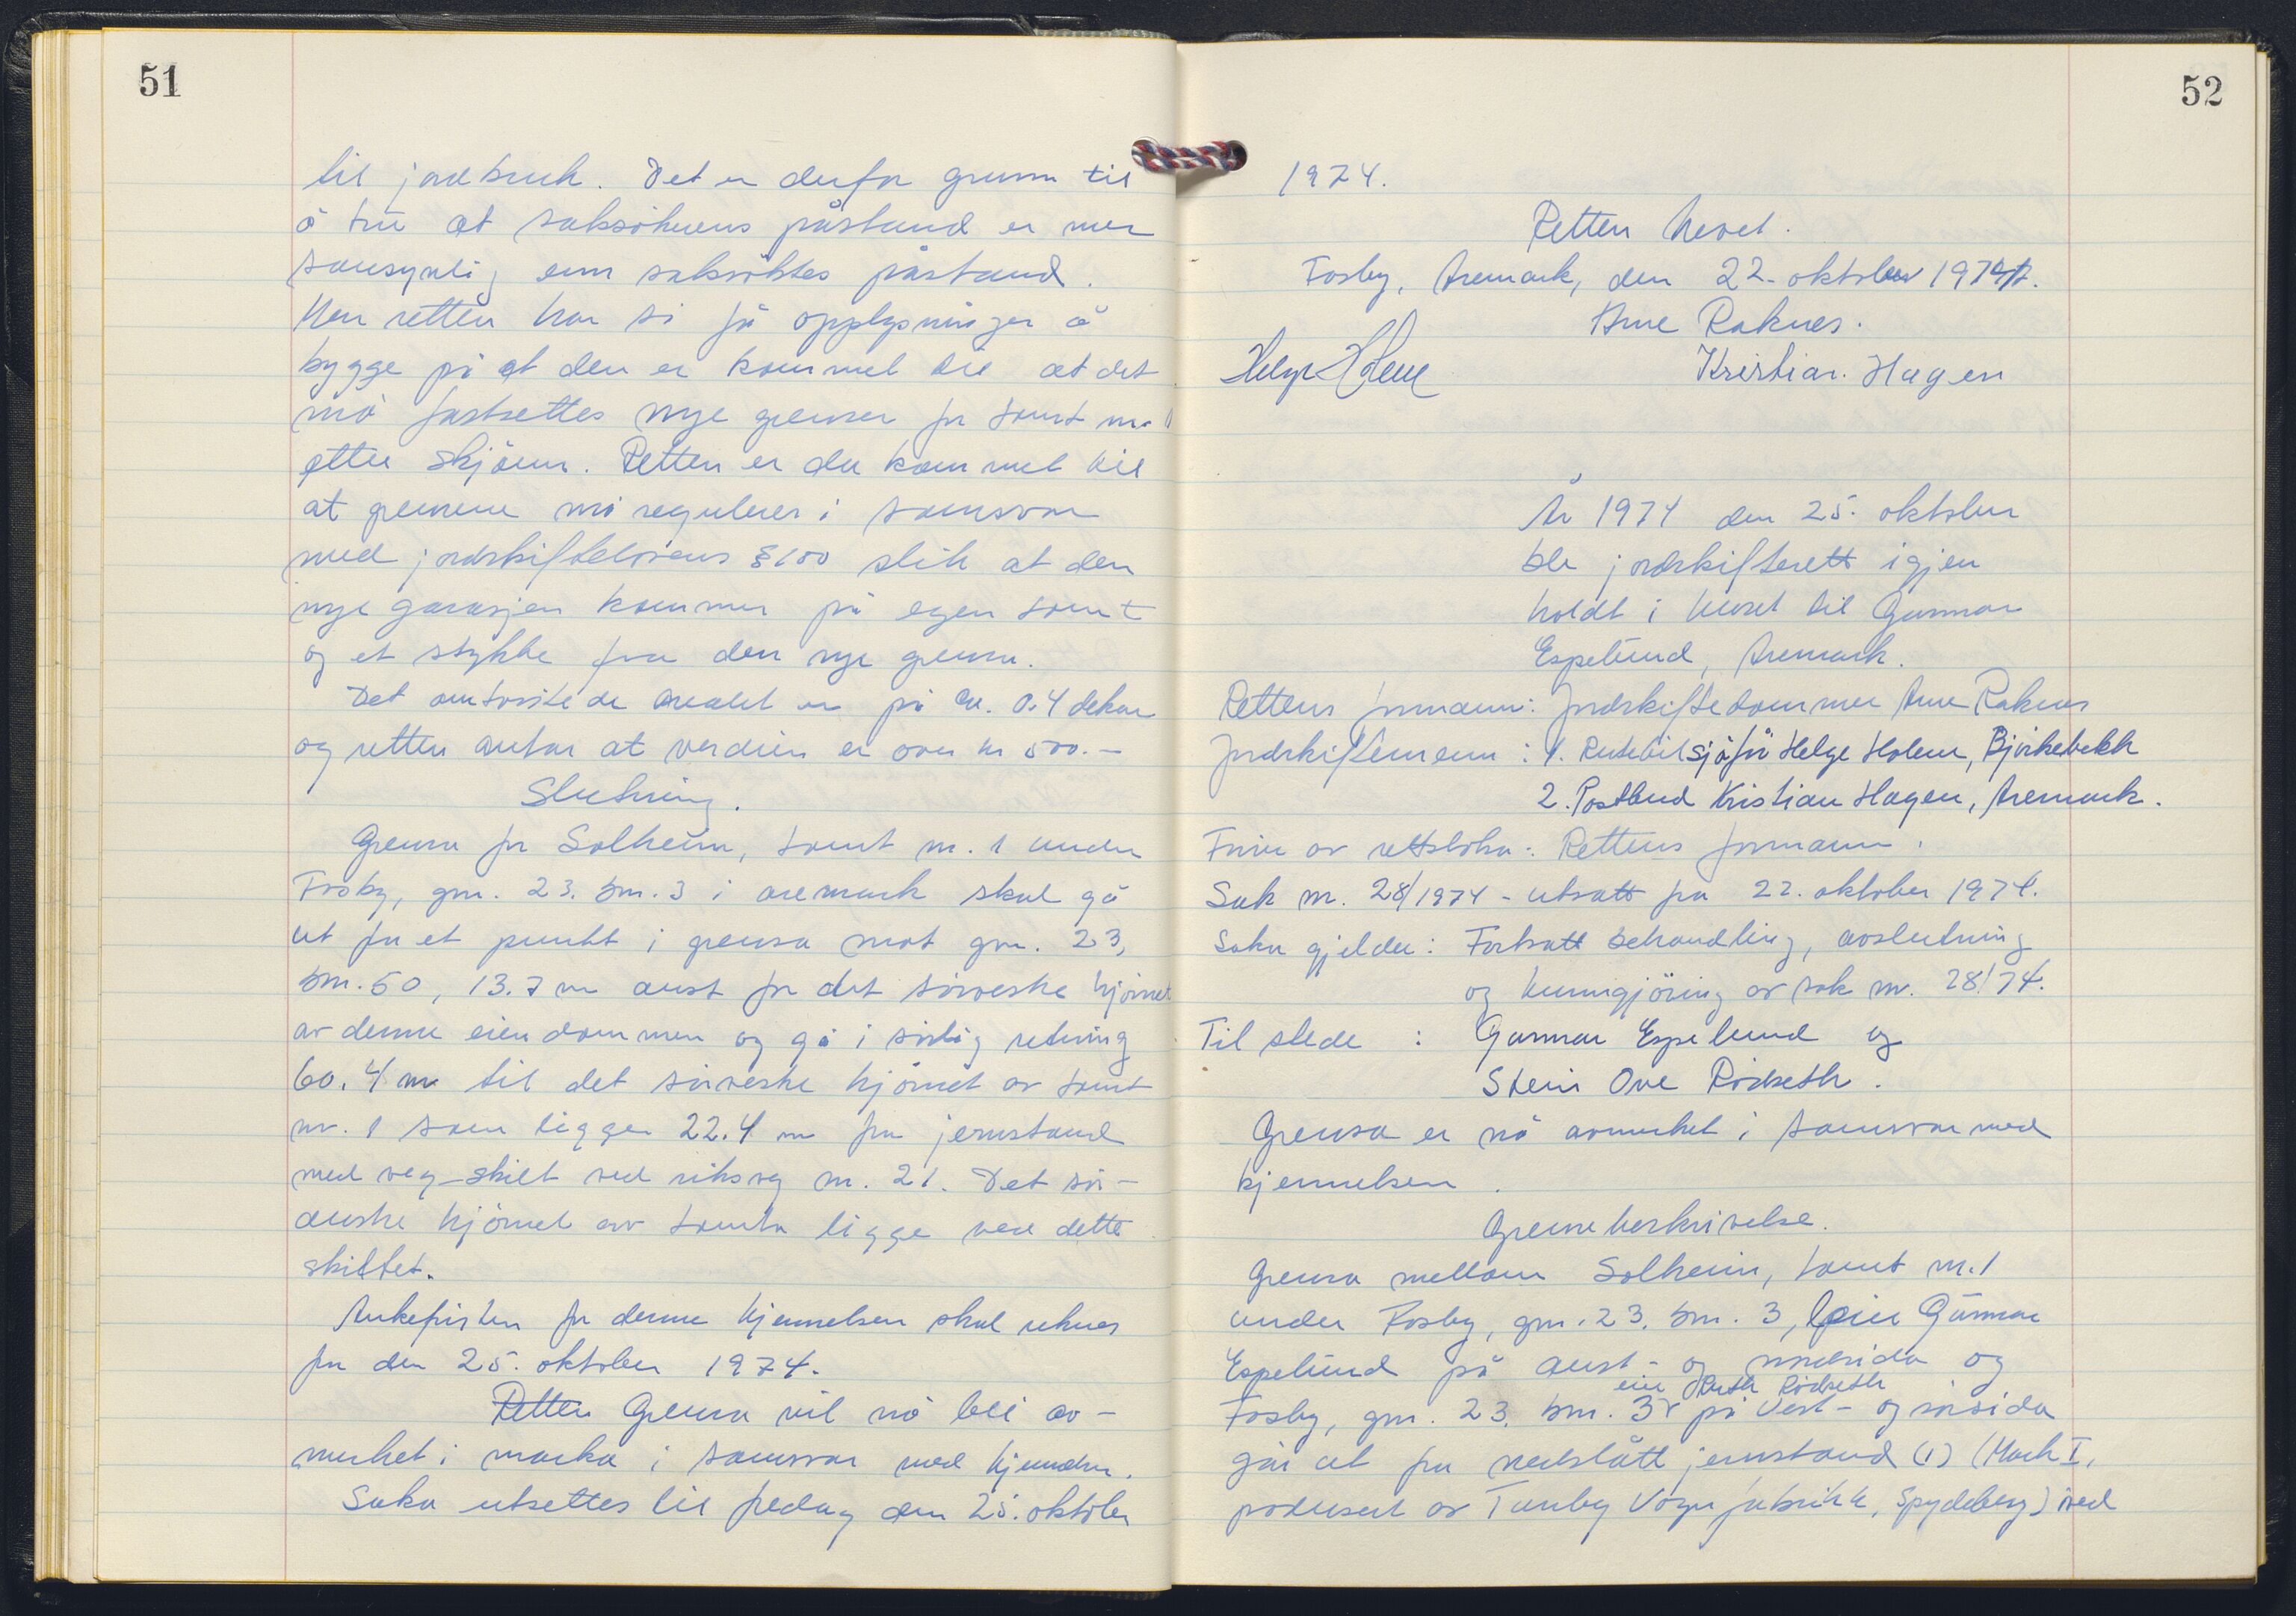 51
til jordbruk. Det er derfor grunn til
å tru at saksøkerens påstand er mer
sansynlig enn saksøktes påstand.
Men retten har så få opplysninger å
bygge på at den er kommet til at det
må fastsettes nye grenser for tomt nr. 1
etter skjønn. Retten er da kommet til
at grensene må reguleres i samsvar
med jordskiftelovens § 100 slik at den
nye garasjen kommer på egen tomt
og et stykke fra den nye grensa.
Det omtvistede arealet er på ca. 0.4 dekar
og retten antar at verdien er over kr 500.-
Slutning.
Grensa for Solheim, tomt nr. 1 under
Fosby, gnr. 23. bnr. 3 i aremark skal gå
ut fra et punkt i grensa mot gnr. 23,
bnr. 50, 13.7 m aust for det sørveske hjørnet
av denne eiendommen og gå i sørlig retning
60.4 m til det sørveske hjørnet av tomt
nr. 1 som ligger 22.4 m fra jernstand
med veg-skilt ved riksveg nr. 21. Det sør-
auske hjørnet av tomta ligge ved dette
skiltet.
Ankefristen for denne kjennelsen skal reknes
fra den 25. oktober 1974.
Retten Grensa vil nå bli av-
merket i marka i samsvar med kjennelsen.
Saka utsettes til fredag den 25. oktober
52
1974.
Retten hevet.
Fosby, Aremark, den 22. oktober 1974.
Arne Raknes.
Helge Holene Kristian Hagen
År 1974 den 25. oktober
ble jordskifterett igjen
holdt i huset til Gunnar
Espelund, Aremark.
Rettens formann: Jordskiftedommer Arne Raknes
Jordskiftemenn: 1. Rutebilsjåfør Helge Holene, Bjørkebekk
2. Postbud Kristian Hagen, Aremark.
Fører av rettsboka: Rettens formann.
Sak nr. 28/1974 - utsatt fra 22. oktober 1974.
Saka gjelder: Fortsatt behandling, avslutning
og kunngjøring av sak nr. 28/74.
Til stede : Gunnar Espelund og
Stein Ove Rødseth.
Grensa er nå avmerket i samsvar med
kjennelsen.
Grensebeskrivelse.
Grensa mellom Solheim, tomt nr. 1
under Fosby, gnr. 23. bnr. 3, eier Gunnar
Espelund på aust- og nordsida og
eier Ruth Rødseth
Fosby, gnr. 23. bnr. 3 på Vest- og sørsida
går ut fra nedslått jernstand (1) (Merk I,
produsert av Tanberg Vognfabrikk, Spydeberg) ved